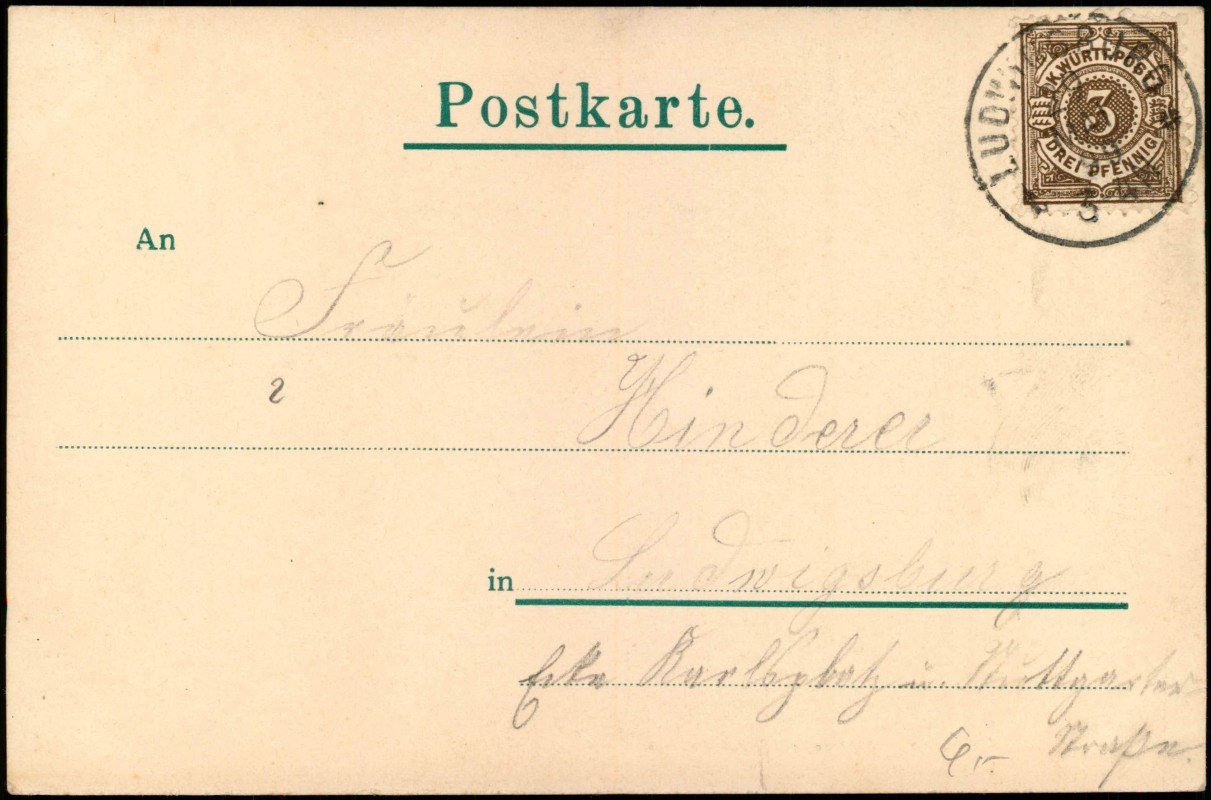 Postkarte.
K. WÜRTT. POST
3
DREI PFENNIG
LUDWIGSBURG
An
Fräulein
2
Hinderer
in Ludwigsburg
Ecke Karlsplatz u. Stuttgarter
Straße.